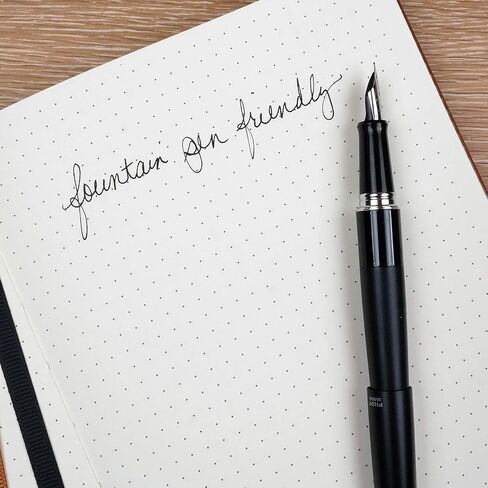 fountain pen friendly
PILOT